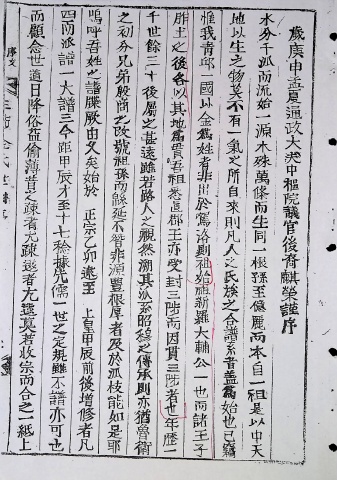 歲庚申孟夏通政大夫中樞院議官後裔麒榮謹序
水分千派而流始一源木殊萬條而生同一根孫至億麗而本自一祖是以中天
地以生之物莫不有一氣之所自來則凡人之氏族之合譜系者蓋爲始也已竊
惟我青邱一國以金爲姓者非出於駕洛則祖始祖新羅大輔公一也而諸王子
胙土之後各以其地爲貫吾祖悉直郡王亦受封三陟而因貫三陟者也年歷一
千世餘三十後屬之甚遠雖若路人之視然溯其派系昭穆之傳承則亦猶魯衛
之初分兄弟殷商之改號祖孫而緜延不替非源豐根厚者及於派枝能如是耶
嗚呼吾姓之譜牒厥由久矣始於 正宗乙卯逮至 上皇甲辰前後增修者凡
四而派譜一大譜三今距甲辰才至十七稔據先儒一世之定規雖不譜亦可也
而顧念世道日降俗益偷薄責之疎者尤疎遠者尤遠莫若收宗而合之一紙上
序文